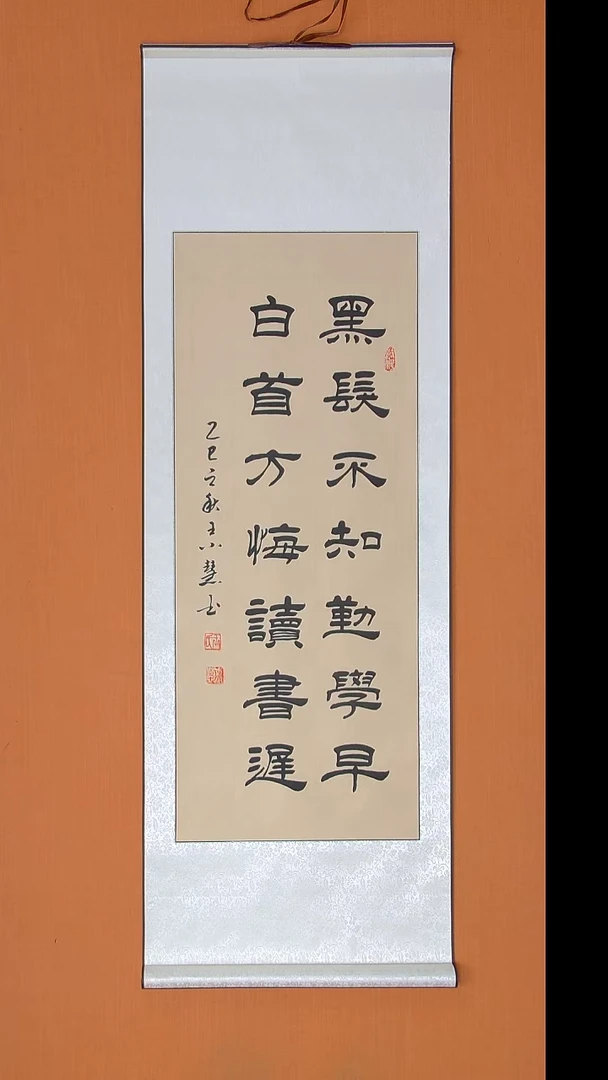 黑髮不知勤學早
白首方悔讀書遲
乙巳之秋王小慧书